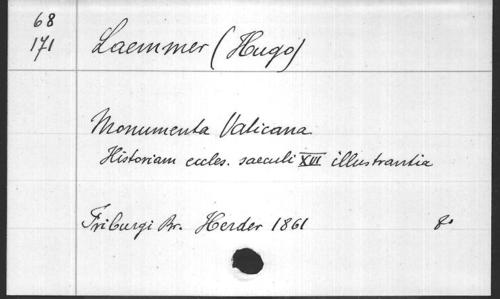 68
171
Laemmer (Hugo)
Monumenta Vaticana
Historiam eccles. saeculi XIII illustrantia
Friburgi Br. Herder 1861 8°